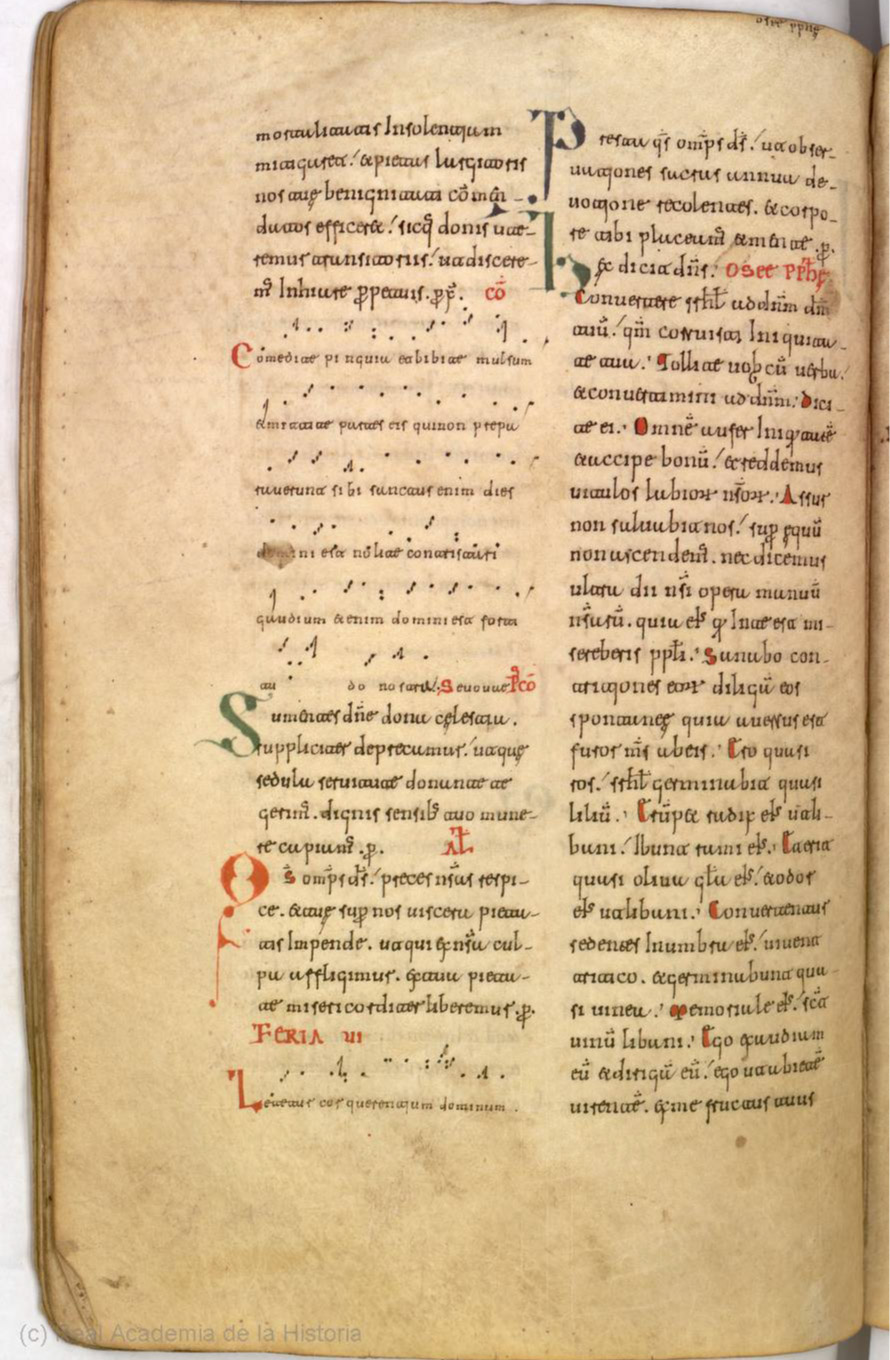 nos atq; benignitati com̄en
datos efficeret sicq; donis ute
remur transitoriis ut adiscere
mꝰ Inhiare ꝑpetuis. ꝑ. cō
Comedite pinguia et bibite mulsum
& mittite partes eis qui non prepa
rauerunt sibi sanctus enim dies
domini est nolite contristari
gaudium & enim domini est forti
tu do nostra. Seuouae Pcō
Sumentes dn̄e dona cęlestia.
suppliciter deprecamur ut aquę
sedula seruitute donante te
gerimꝰ. dignis sensibꝰ tuo mune
re capiamꝰ. ꝑ. AL
Qs̄ omps ds̄ preces nr̄as respi
ce. & tuę sup nos uiscera pieta
tis Impende. ut qui ex nr̄a cul
pa affligimur. ex tua pieta
te misericorditer liberemur. ꝑ.
FERIA VI
Letetur cor querentium dominum.
Presta qs̄ omps ds̄ ut obser
uationes sacras annua de
uotione recolentes. & corpo
re tibi placeamꝰ & mente. ꝑ.
Hęc dicit dn̄s. OSEE PPHE
Conuertere srhl̄ ad dn̄m dm̄
tuū. qm̄ corruisti In iquita
te tua. Tollite uobcū uerba.
& conuertimini ad dn̄m. Dici
te ei. Omnē aufer Iniquitatē
& accipe bonū. & reddemus
uitulos labiorum nrōrum. Assur
non saluabit nos. sup equū
non ascendemꝰ. nec dicemus
ultra dii nr̄i opera manuū
nr̄arū. quia eiꝰ qui In te est mi
sereberis ppl̄i. Sanabo con
tritiones eorum diligā eos
spontanee quia auersus est
furor mꝰs ab eis. Ero quasi
ros. srhl̄ germinabit quasi
liliū. Erūpet radix eiꝰ ut li
bani. Ibunt rami eiꝰ. Et erit
quasi oliua gl̄a eiꝰ. & odor
eiꝰ ut libani. Conuertentur
sedentes In umbra eiꝰ. uiuent
tritico. & germinabunt qua
si uinea. Memoriale eiꝰ. sic̄
uinū libani. Ego exaudiam
eū & dirigā eū. ego ut abietē
uirentē. ex me fructus tuus
(c) Real Academia de la Historia